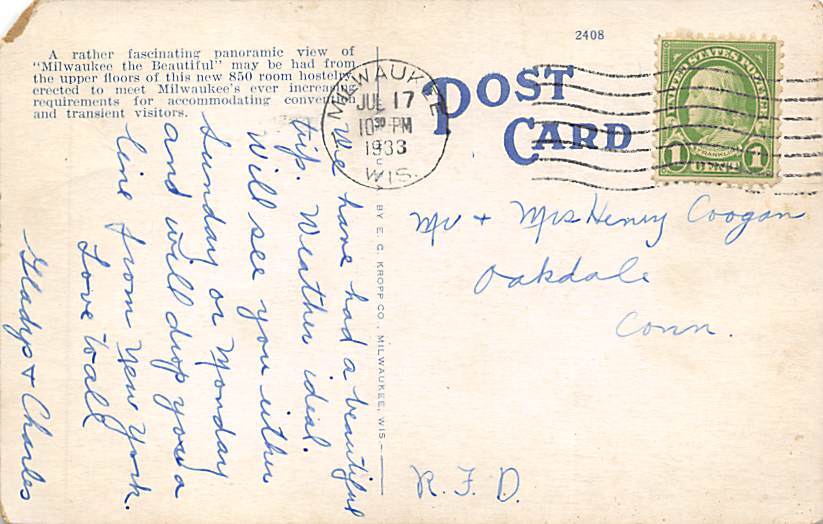 2408
A rather fascinating panoramic view of
"Milwaukee the Beautiful" may be had from
the upper floors of this new 850 room hostelry
erected to meet Milwaukee's ever increasing
requirements for accommodating convention
and transient visitors.
MILWAUKEE
JUL 17
10 30 PM
1933
WIS.
POST
CARD
UNITED STATES POSTAGE
FRANKLIN
1 CENT 1
We have had a beautiful
trip. Weather ideal.
Will see you either
Sunday or Monday
and will drop you a
line from New York.
Love to all
Gladys + Charles
BY E. C. KROPP CO., MILWAUKEE, WIS.
Mr + Mrs Henry Coogan
Oakdale
Conn.
R.F.D.